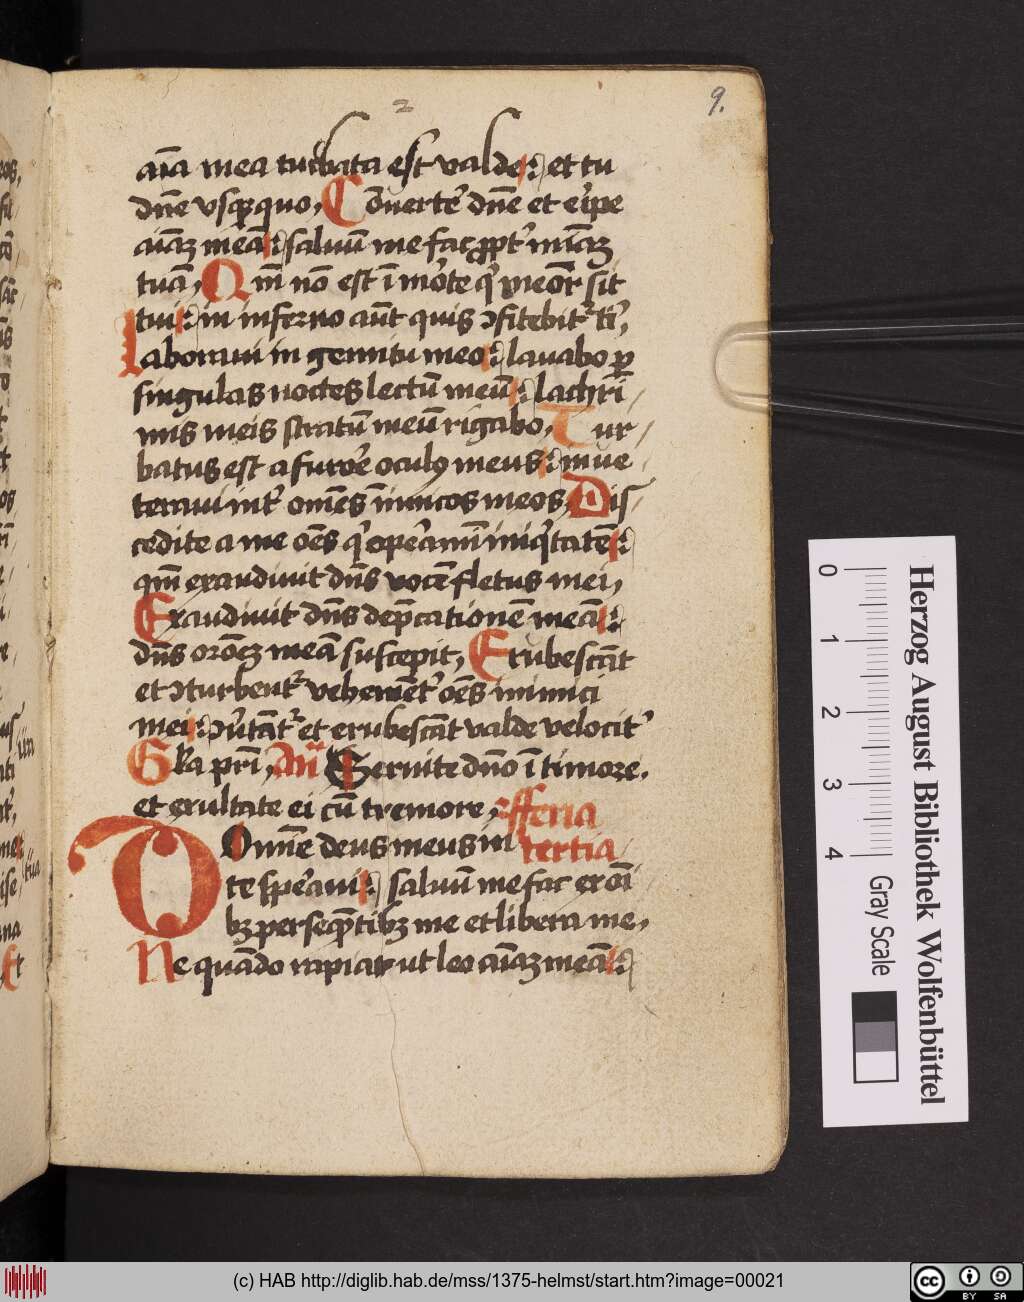 2
9.
aīa mea turbata est valde: et tu
dn̄e vsqꝫquo, Cōuerte dn̄e et eripe
aīaꝫ meā: saluū me fac ꝓpt' mīaꝫ
tuā, Qm̄ nō est ī morte q' meor̄ sit
tui: in inferno aūt quis ↄfitebit' t',
Laboraui in gemitu meo: lauabo ꝑ
singulas noctes lectū meū: lachri
mis meis stratū meū rigabo, Tur
batus est a furore oculꝰ meus: inue
teraui int' omēs īimicos meos, Dis
cedite a me oēs q' operamī iniq'tatē:
qm̄ exaudiuit dn̄s vocē fletus mei,
Exaudiuit dn̄s dep̄cationē meā:
dn̄s orōeꝫ meā suscepit, Erubescāt
et ↄturbent' vehemēt' oēs inimici
mei: ↄuertāt' et erubescāt valde velocit'
Gl'a pr̄i, An̄ Seruite dn̄o ī timore.
et exultate ei cū tremore, fferia
Domine deus meus in tertia
te speraui: saluū me fac ex oī
bꝫ persequētibꝫ me et libera me,
Ne quādo rapiat ut leo aīaꝫ meā:
Herzog August Bibliothek Wolfenbüttel
0 1 2 3 4
Gray Scale
(c) HAB http://diglib.hab.de/mss/1375-helmst/start.htm?image=00021
cc BY SA